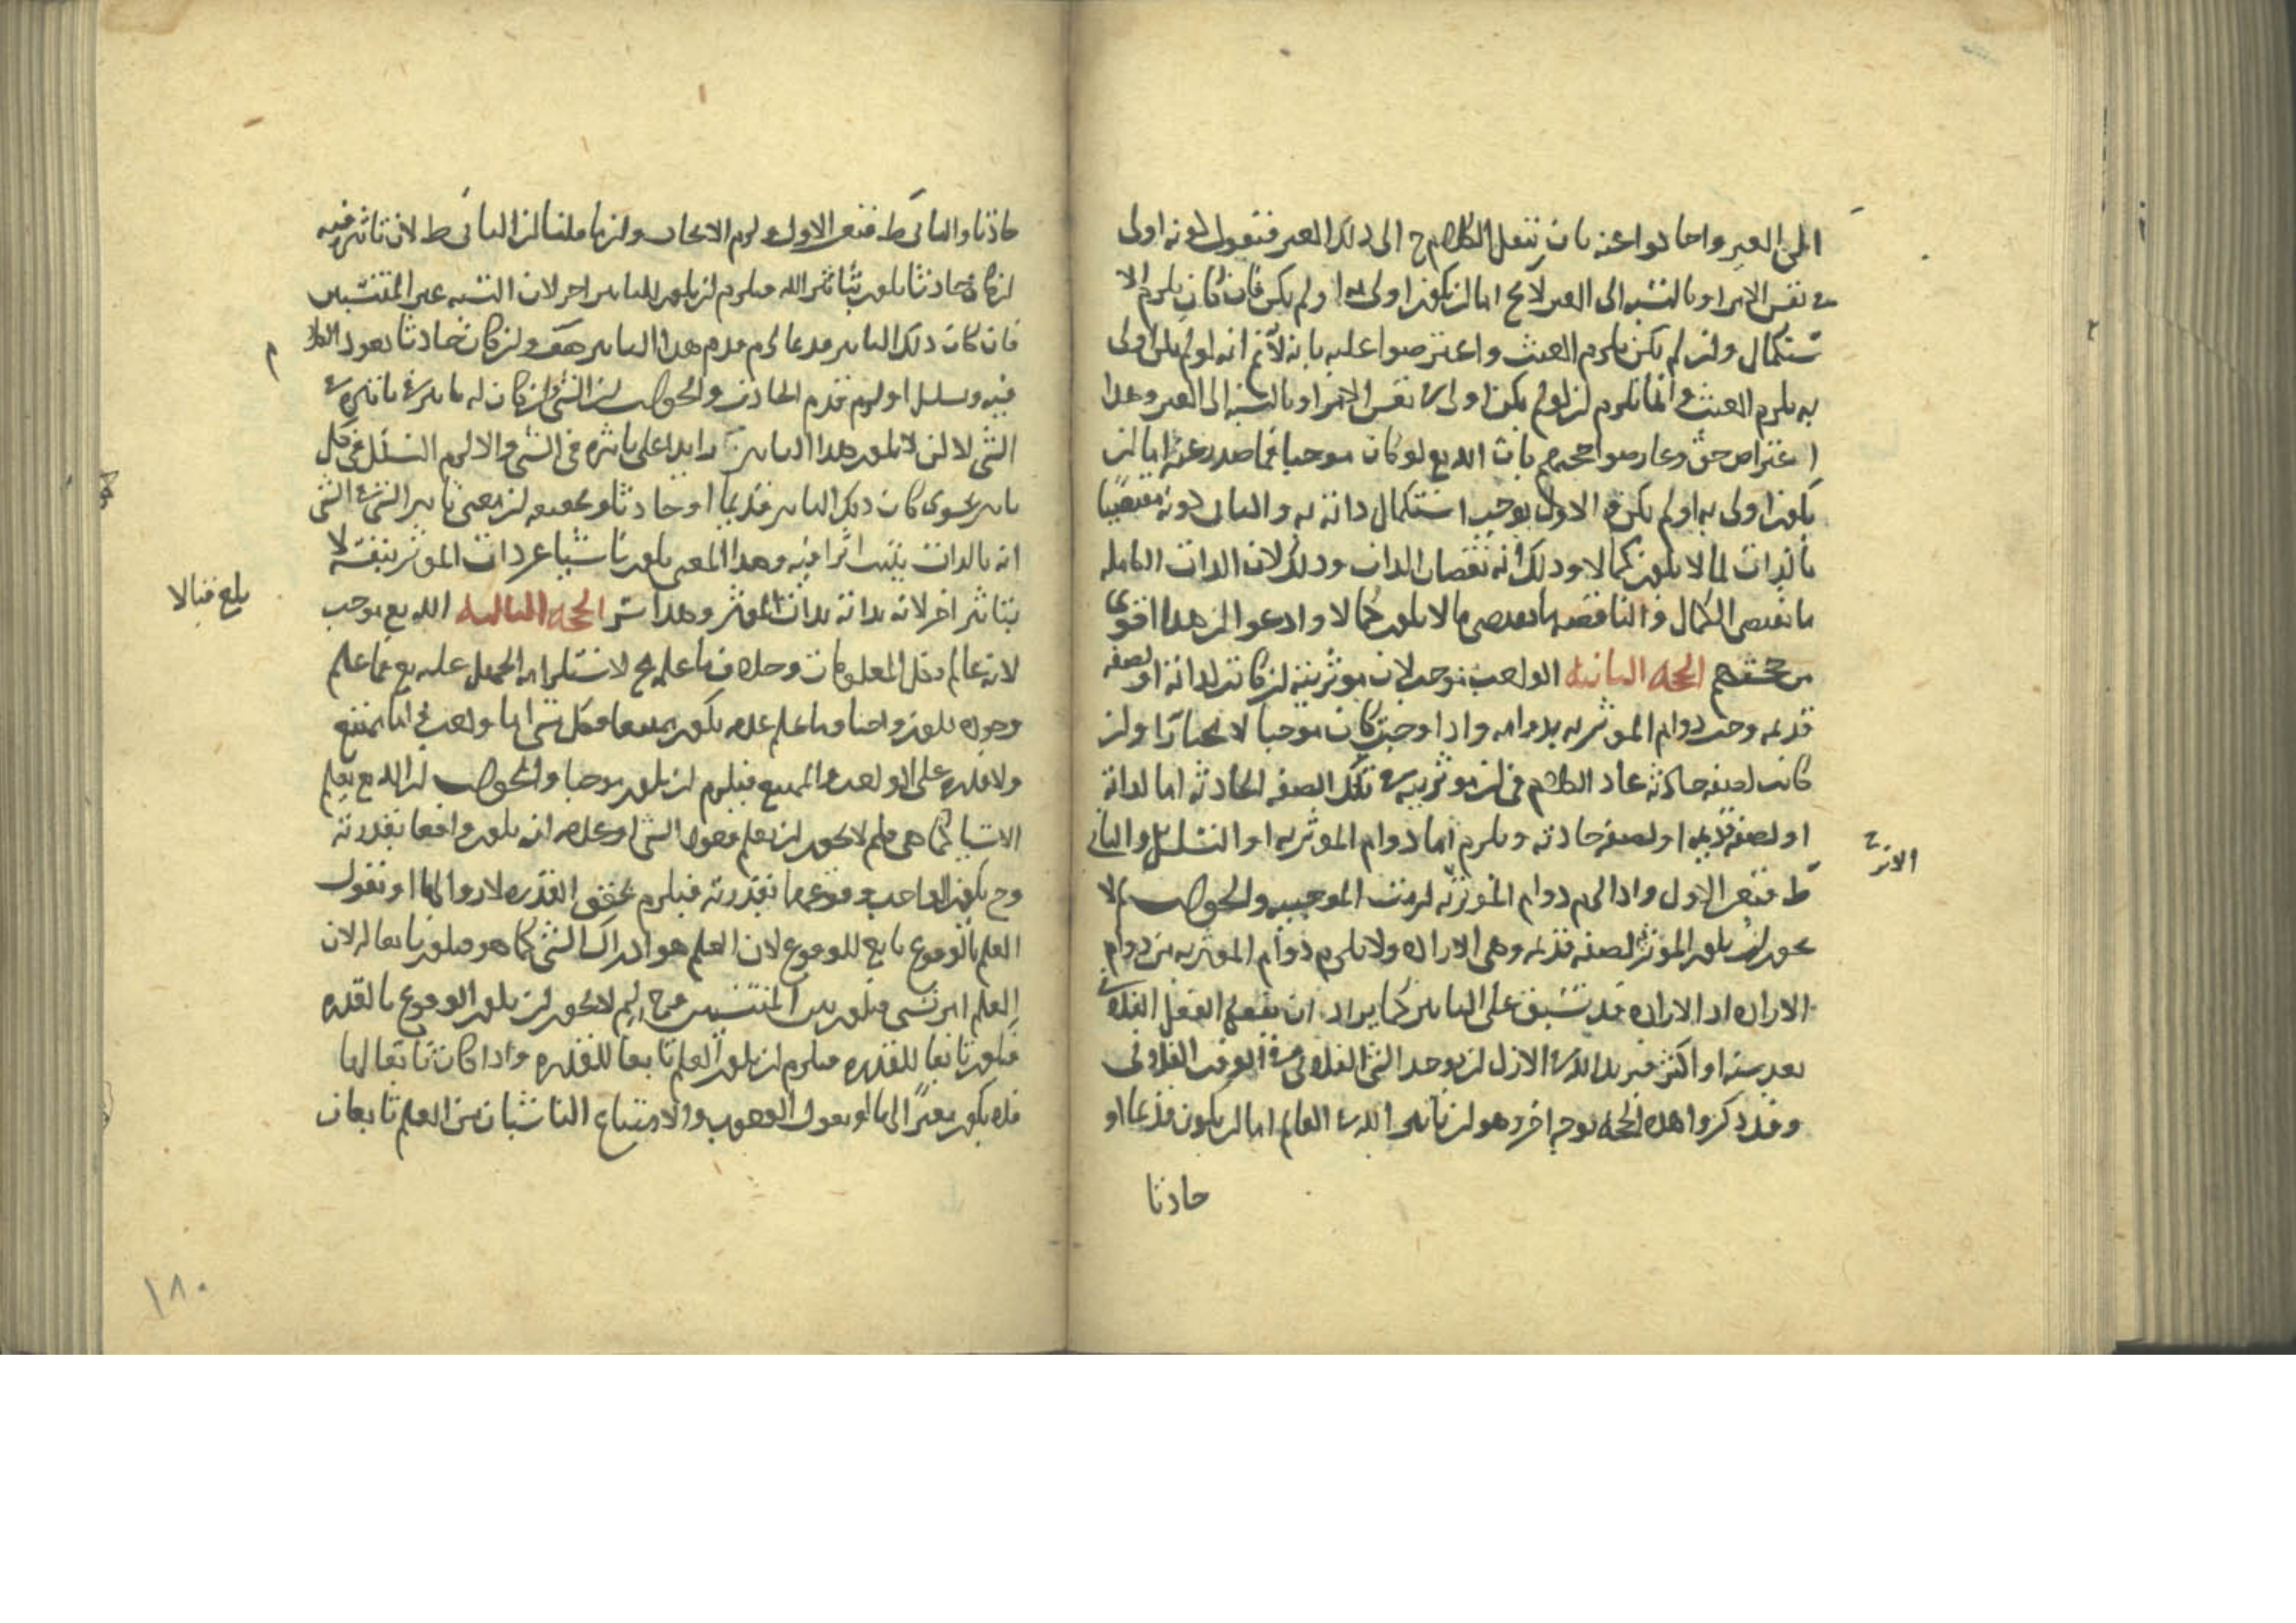 الى الغير واجابوا عنه بان ننقل الكلام ح الى ذلك الغير فنقول كونه اولى
في نفس الامر او بالنسبه الى الغير لا يخ اما ان يكون اولى له او لم يكن فان كان يلزم الا
ستكمال وان لم يكن يلزم العبث واعترضوا عليه بانه لانم انه لو لم يكن اولى
به يلزم العبث وانما يلزم ان لو لم يكن اولى في نفس الامر او بالنسبه الى الغير وهذا
اعتراض حق وعارضوا حجتهم بان الله تع لو كان موجبا فما صدر عنه اما ان
يكون اولى به او لم يكن والاول يوجب استكمال ذاته به والثانى كونه مقتضيا
بالذات لما لا يكون كمالا وذلك نقصان الذات وذلك لان الذات الكامله
ما تقتضى الكمال والناقصه ما تقتضى ما لا يكون كمالا وادعوا ان هذا اقوى
من حجتهم الحجه الثانيه الواجب موجب لان موثريته ان كانت لذاته او لصفه
قديمه وجب دوام الموثريه بدوامه واذا وجبت كان موجبا لا مختارا وان
كانت لصفه حادثه عاد الكلام فى ان موثريته في تلك الصفه الحادثه اما لذاته
او لصفه قديمه او لصفه حادثه ويلزم اما دوام الموثريه او التسلسل والثانى
ط فتعين الاول واذا لزم دوام الموثريه لزمت الموجبيه والجواب لم لا
يجوز ان يكون الموثر لصفه قديمه وهى الاراده ولا يلزم دوام الموثريه من دوام
الاراده اذ الاراده قد تسبق على التاثير كما يراد ان يفعل الفعل الفلانى
بعد سنه او اكثر فيريد الله في الازل ان يوجد الشى الفلانى في الوقت الفلانى
وقد ذكروا هذه الحجه بوجه اخر وهو ان تاثير الله في العالم اما ان يكون قديما او
حادثا
حادثا والثانى ط فتعين الاول ولزم الايجاب وانما قلنا ان الثانى ط لان تاثيره فيه
ان كان حادثا يكون بتاثير الله فيلزم ان يكون للتاثير اخر لان النسبه غير المنتسبين
فان كان ذلك التاثير قديما لزم قدم هذا التاثير هف وان كان حادثا يعود الكلام
فيه وتسلسل او لزم تقدم الحادث والجواب ان الشى ان كان له تاثير في تاثيره في
الشى لا ان لا يكون هذا التاثير زايدا على تاثيره فى الشى والا لزم التسلسل فى كل
تاثير سوى كان ذلك التاثير قديما او حادثا وتحقيقه ان معنى تاثير الشى في الشى
انه بالذات يثبت اثرا فيه وهذا المعنى يكون ناشيا عن ذات الموثر بنفسه لا
بتاثير اخر لانه بذاته بذات الموثر وهذا سر الحجه الثالثه الله تع موجب
لانه عالم بكل المعلومات وحده فما علم لاستلزامه الجهل عليه تع فما علم
وجوده يكون واجبا وما علم عدمه يكون ممتنعا فكل شى اما واجب او ممتنع
ولا قدره على الواجب والممتنع فيلزم ان يكون موجبا والجواب ان الله تع يعلم
الاشيا كما هى فلم لا يجوز ان يعلم وقوع الشى او عدمه ان يكون واقعا بقدرته
وح يكون الواجب وقوعهما بقدرته فيلزم تحقق القدره لا زوالها او نقول
العلم بالوقوع تابع للوقوع لان العلم هو ادراك الشى كما هو فيكون تابعا له لان
العلم امر نسبى فيكون بين المنتسبين فح لم لا يجوز ان يكون الوقوع بالقدره
فيكون تابعا للقدره فيلزم ان يكون العلم تابعا للقدره واذا كان تابعا لها
فلا يكون مغيرا لها او نقول الوجوب والامتناع الناشيان من العلم تابعان
بلغ قبالا
١٨٠